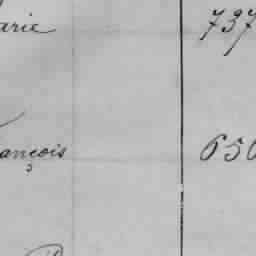 arie 737
ançois 650